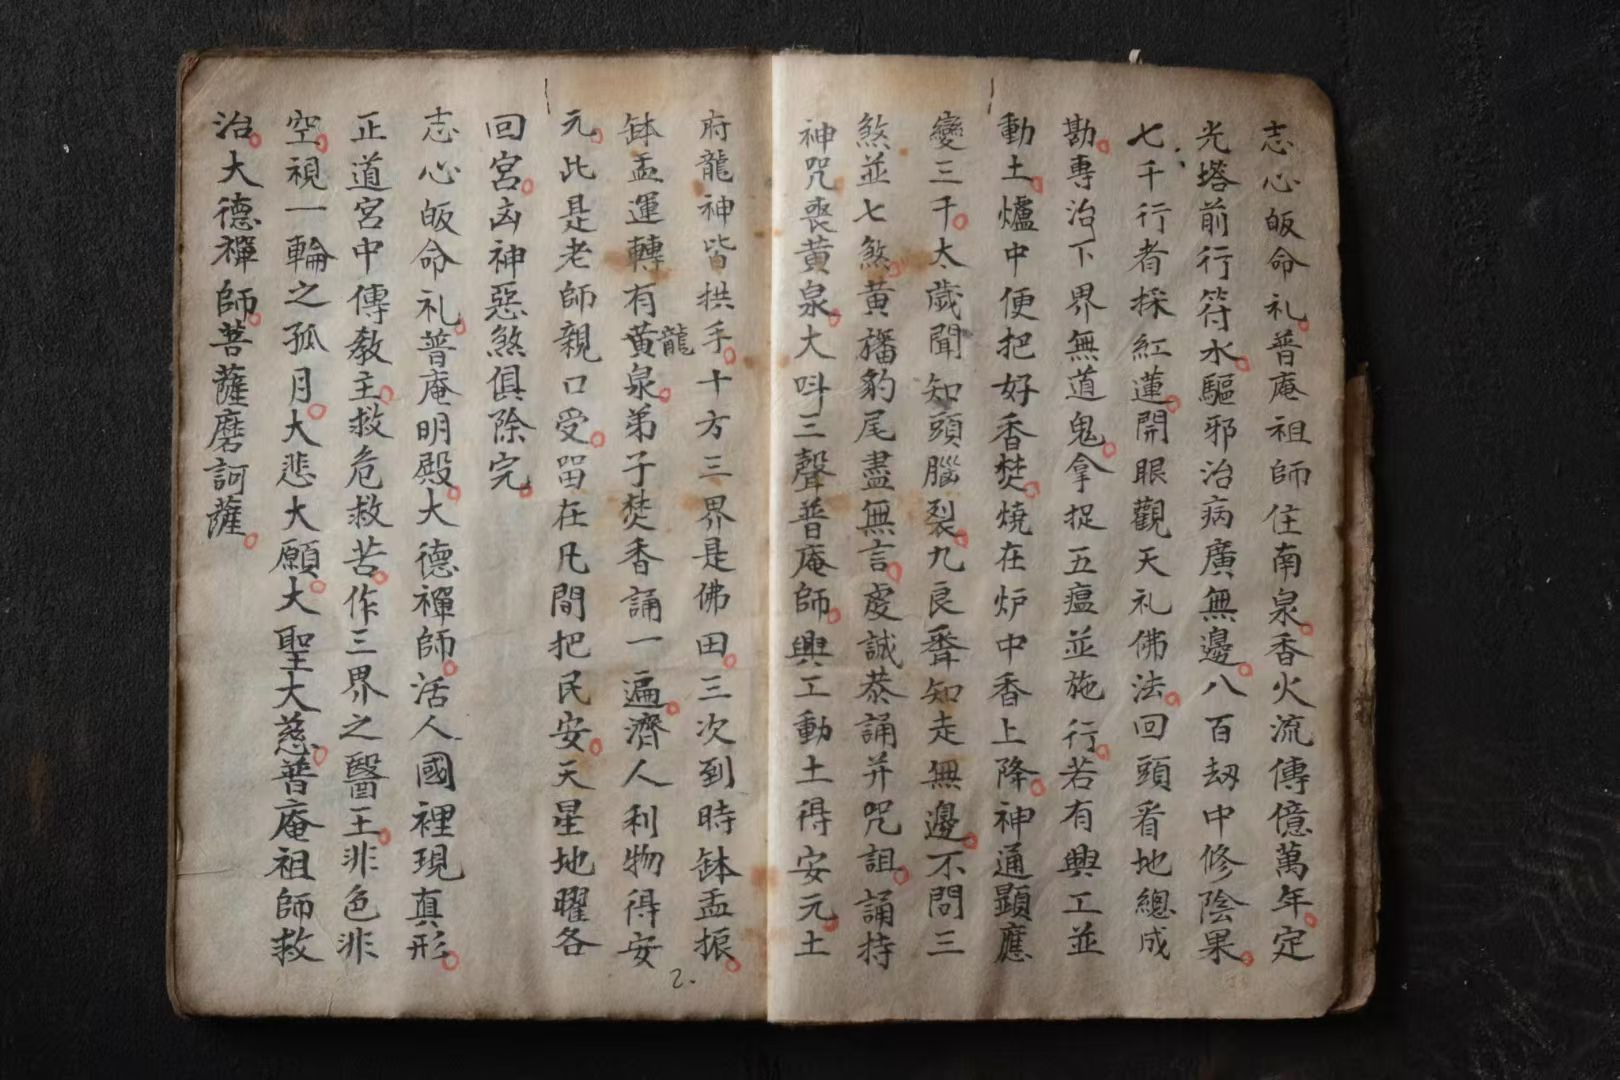 志心皈命礼。普庵祖師住南泉。香火流傳億萬年。定
光塔前行符水。驅邪治病廣無邊。八百劫中修陰果。
七千行者採紅蓮。開眼觀天礼佛法。回頭看地總成
勘。專治下界無道鬼。拿捉五瘟並施行。若有興工並
動土。爐中便把好香焚。燒在炉中香上降。神通顕應
變三千。太歲聞知頭腦裂。九良知走無邊。不問三
煞並七煞。黄旛豹尾盡無言。虔誠恭誦并咒詛。誦持
神咒喪黄泉。大呌三聲普庵師。興工動土得安元。土
府龍神皆拱手。十方三界是佛田。三次到時缽盂振。
缽盂運轉有黄龍泉。弟子焚香誦一遍。濟人利物得安
元。此是老師親口受。留在凡間把民安。天星地曜各
回宮。凶神惡煞俱除完。
志心皈命礼。普庵明殿。大德禪師。活人國裡現真形。
正道宮中傳教主。救危救苦。作三界之醫王。非色非
空。視一輪之孤月。大悲大願。大聖大慈。普庵祖師救
治。大德禪師。菩薩磨訶薩。
2.